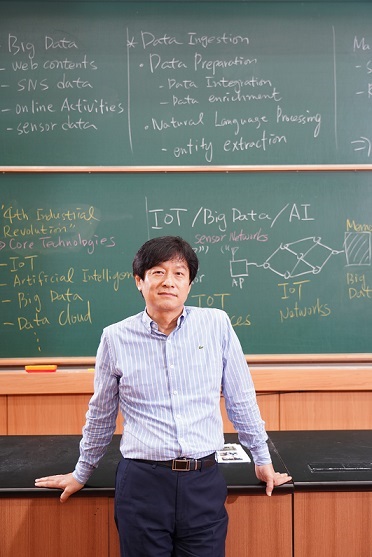 Big Data
- web contents
- SNS data
- online Activities
- sensor data
* Data Ingestion
• Data Preparation
- Data Integration
- Data enrichment
• Natural Language Processing
- entity extraction
"4th Industrial
Revolution"
Core Technologies
- IoT
- Artificial Intelligen
- Big Data
- Data Cloud
IoT/Big Data/AI
sensor Networks
AP
IoT
Networks
IOT
ces
Big